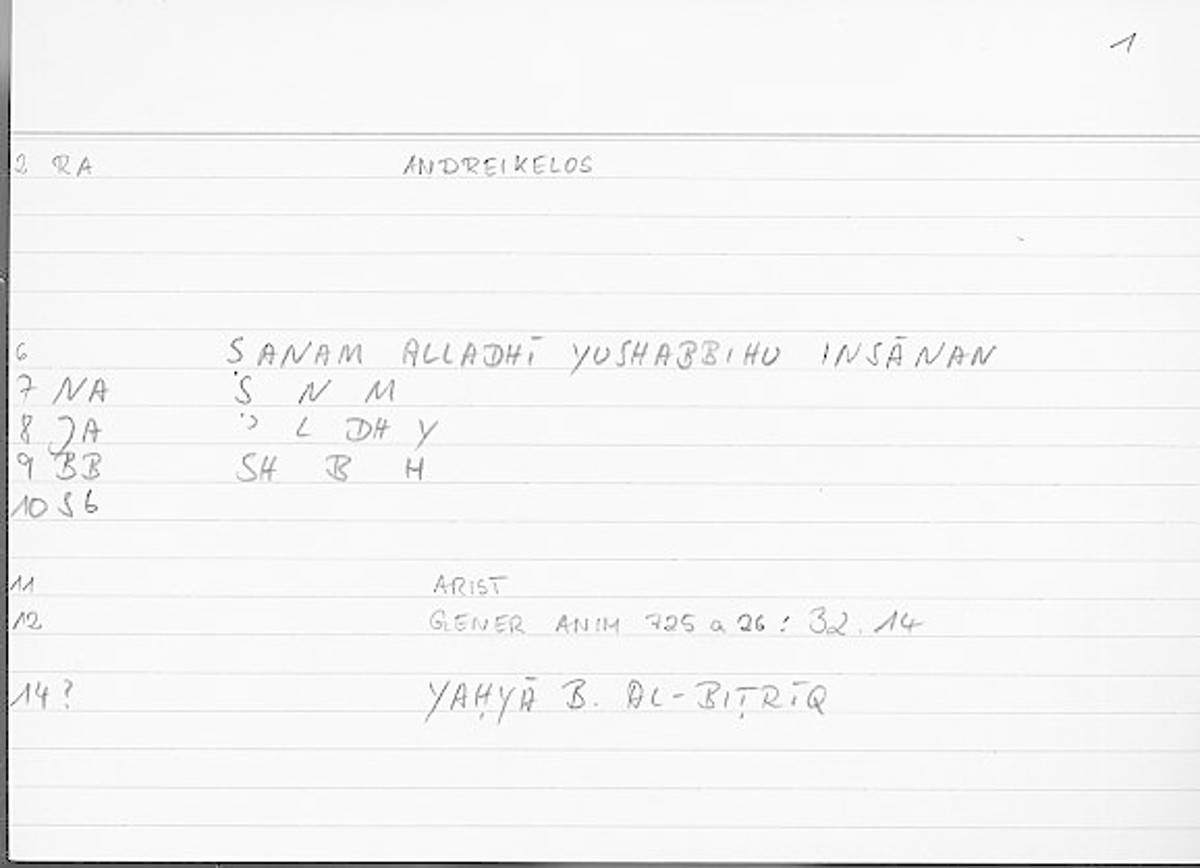 1
2 RA ANDREIKELOS
6 ṢANAM ALLADHĪ YUSHABBIHU INSĀNAN
7 NA Ṣ N M
8 JA ʾ L DH Y
9 BB SH B H
10 S6
11 ARIST
12 GENER ANIM 725 a 26 : 32. 14
14 ? YAḤYĀ B. AL-BIṬRĪQ